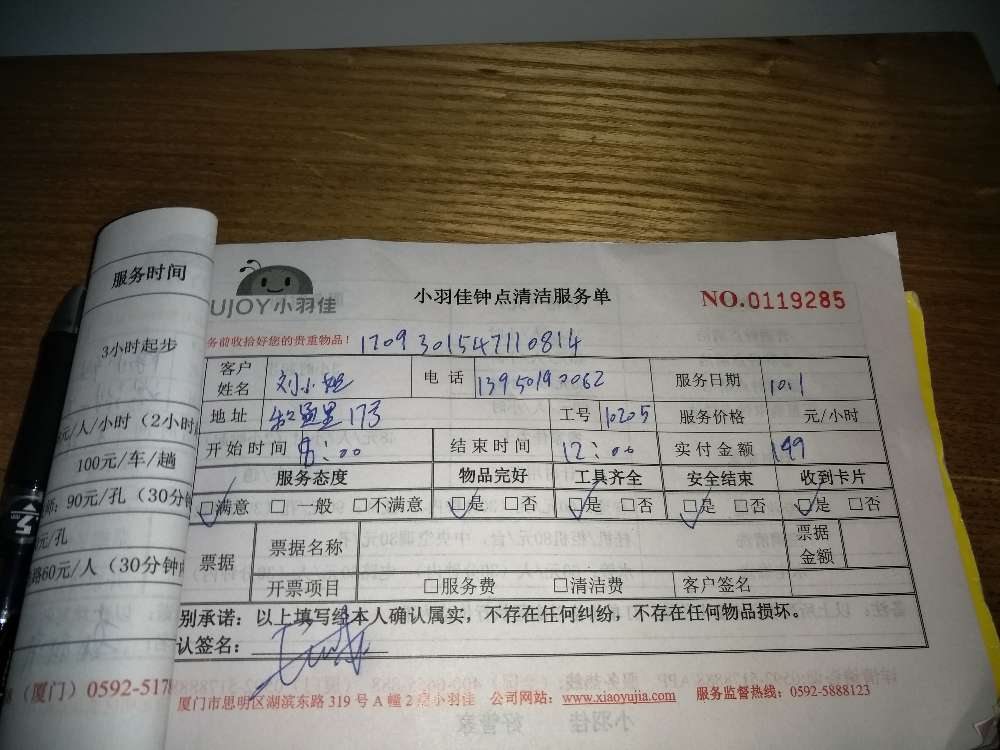 服务时间
3小时起步
元/人/小时（2小时
100元/车/趟
90元/孔（30分钟
元/孔
60元/人（30分钟
（厦门）0592-5178
UJOY小羽佳
小羽佳钟点清洁服务单
NO.0119285
务前收拾好您的贵重物品！ 1709301547110814
客户姓名 刘小姐 电话 服务日期 10.1
地址 17号 工号 10205 服务价格 元/小时
开始时间 9:00 结束时间 12:00 实付金额 149
服务态度 物品完好 工具齐全 安全结束 收到卡片
☑满意 □一般 □不满意 ☑是 □否 ☑是 □否 ☑是 □否 ☑是 □否
票据 票据名称 票据金额
开票项目 □服务费 □清洁费 客户签名
别承诺：以上填写经本人确认属实，不存在任何纠纷，不存在任何物品损坏。
认签名：
厦门市思明区湖滨东路319号A幢2 小羽佳 公司网站：www.xiaoyujia.com 服务监督热线：0592-5888123